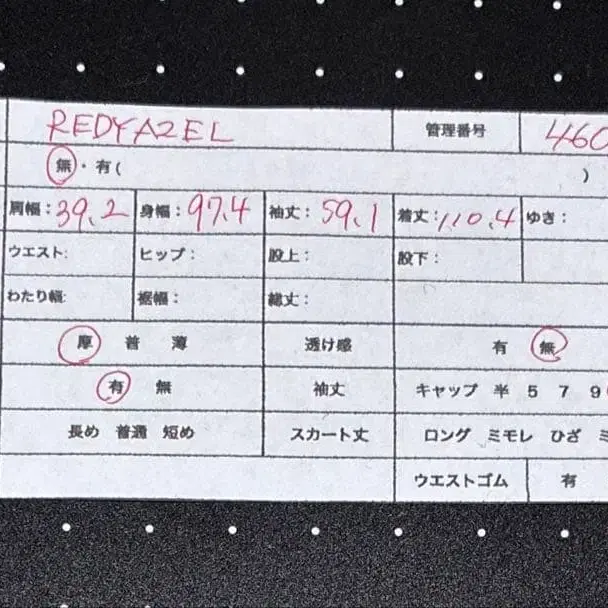 REDYAZEL 管理番号 460
無・有( )
肩幅:39.2 身幅:97.4 袖丈:59.1 着丈:110.4 ゆき:
ウエスト: ヒップ: 股上: 股下:
わたり幅: 裾幅: 総丈:
厚 普 薄 透け感 有 無
有 無 袖丈 キャップ 半 5 7 9
長め 普通 短め スカート丈 ロング ミモレ ひざ ミ
ウエストゴム 有